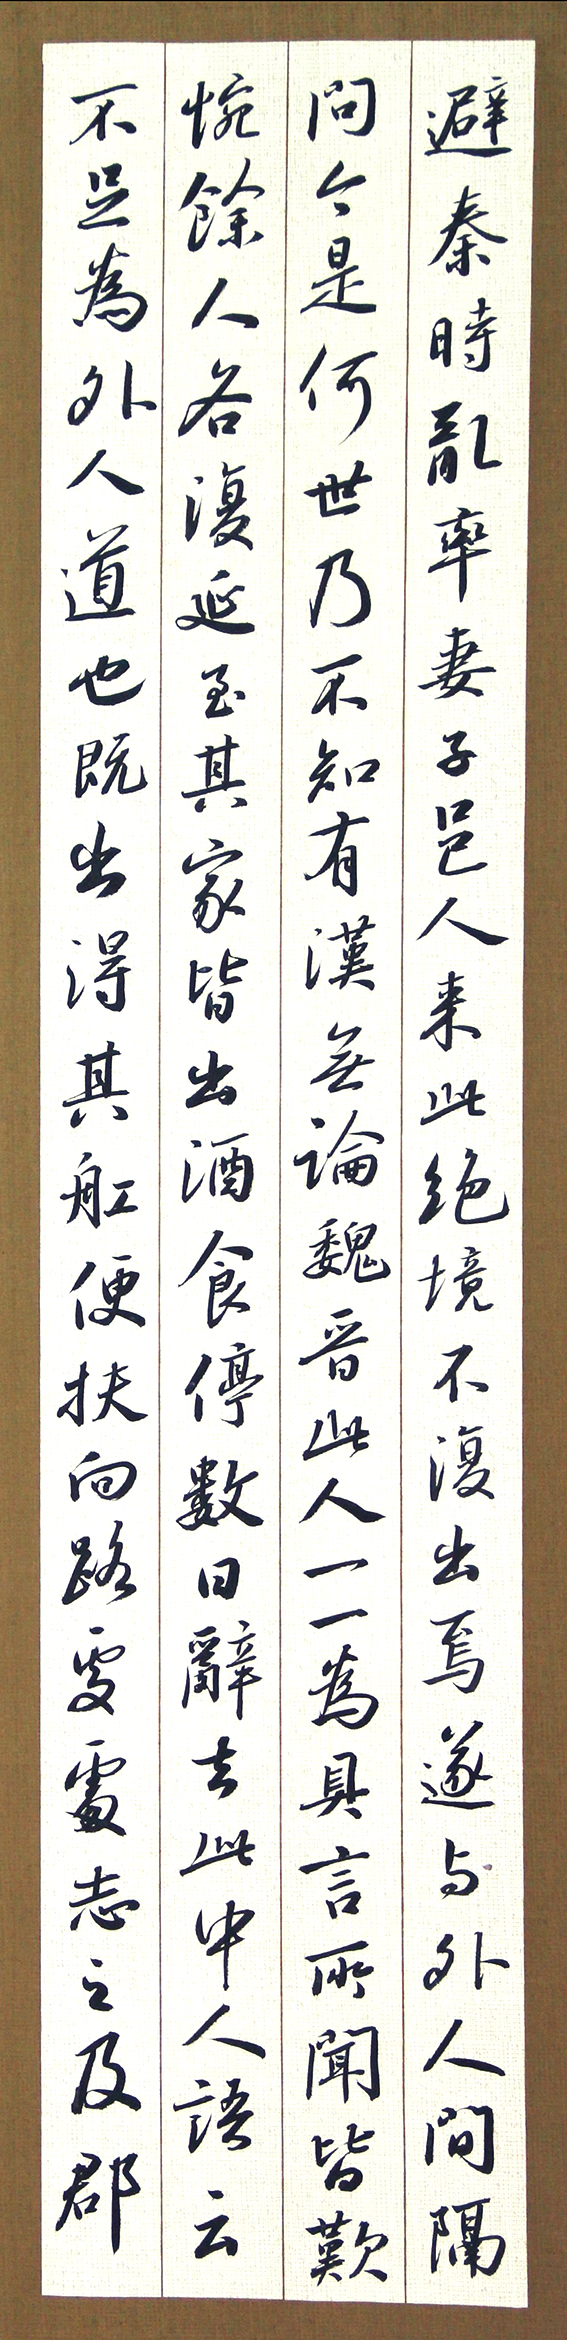 避秦時亂率妻子邑人来此绝境不復出焉遂与外人間隔
問今是何世乃不知有漢無論魏晋此人一一為具言所聞皆歎
惋餘人各復延至其家皆出酒食停數日辭去此中人語云
不足為外人道也既出得其舡便扶向路處處志之及郡